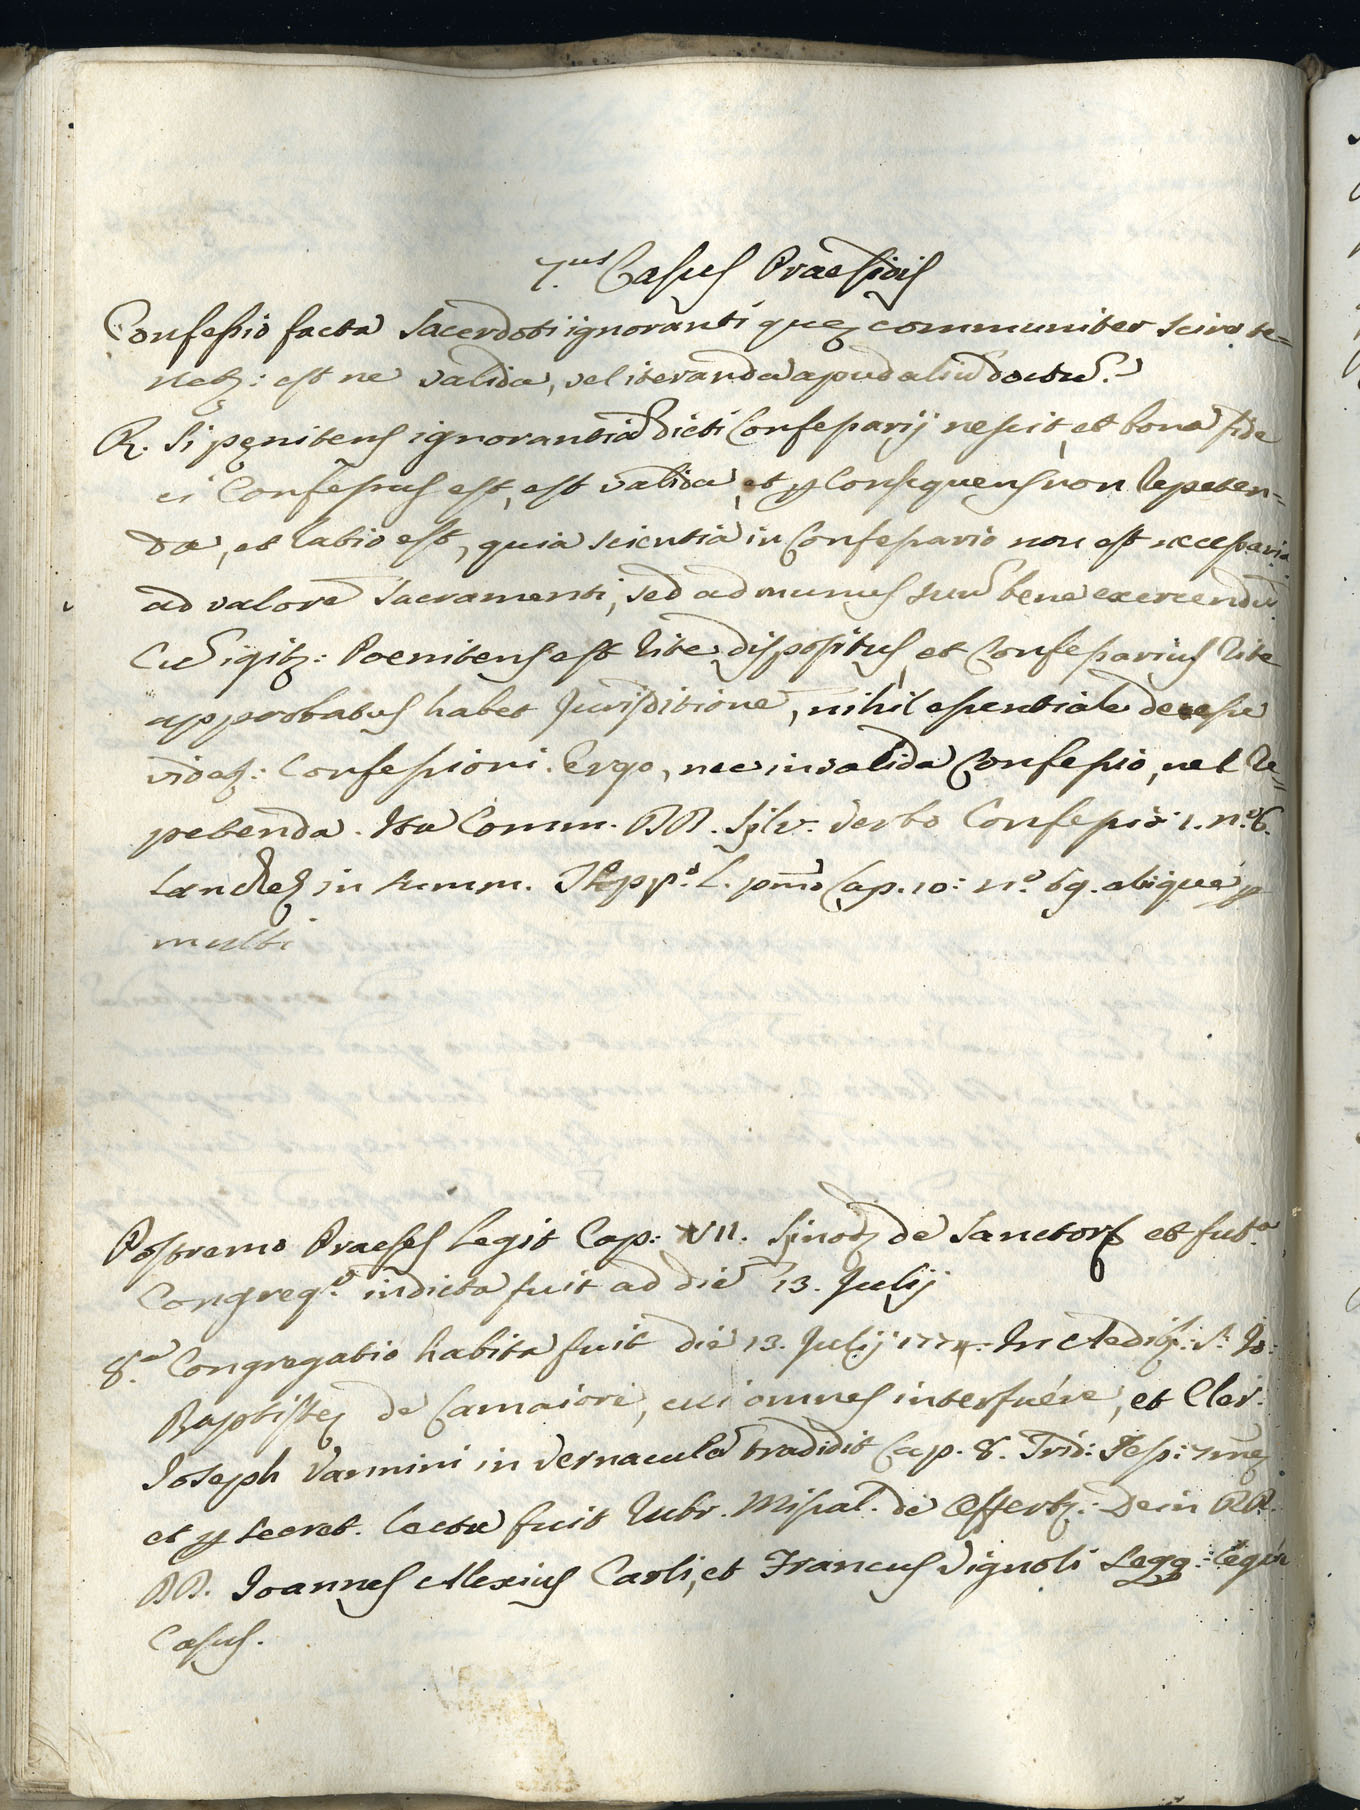 7.us Casus Praesidis
Confessio facta Sacerdoti ignoranti quę communiter scire te=
netʒ: est ne valida, vel iteranda apud aliũ doctũ?
R. Si pęnitens ignorantiã dicti Confessarij nescit, et bona fide
ei Confessus est, est valida, et ꝑ Consequens non Repeten=
da, et Ratio est, quia scientia in Confessario non est necessaria
ad valorẽ Sacramenti, sed ad munus suũ bene exercendũ
Cũ igitʒ: Poenitens est Rite dispositus, et Confessarius Rite
approbatus habet Jurisditionẽ, nihil essentiale deesse
videtʒ: Confessioni. Ergo, nec invalida Confessio, nec Re=
petenda. Ita Comm. DD. Sylv. Verbo Confessio 1. n.o 6.
Sancheʒ in summ. L. pmo Cap. 10: n.o 69. aliique ꝑ
multi
Postremo Praeses Legit Cap: XVII. Sinodʒ de Sanctor. et fut.a
Congreg.o indicta fuit ad diẽ 13. Julij
8.a Congregatio habita fuit die 13. Julij 1774. In Aedibʒ: S: Jo:
Baptistę de Camaiore, cui omnes interfuére, et Cler.
Joseph Vannini in vernacula tradidit Cap. 8. Trid: Sess: 7mę
et ꝑ secret. lecta fuit Rubr. Missal. de Offertʒ: Dein RR.
DD. Joannes Alexius Carli, et Francus Vignoli Legg: legere
Casus.